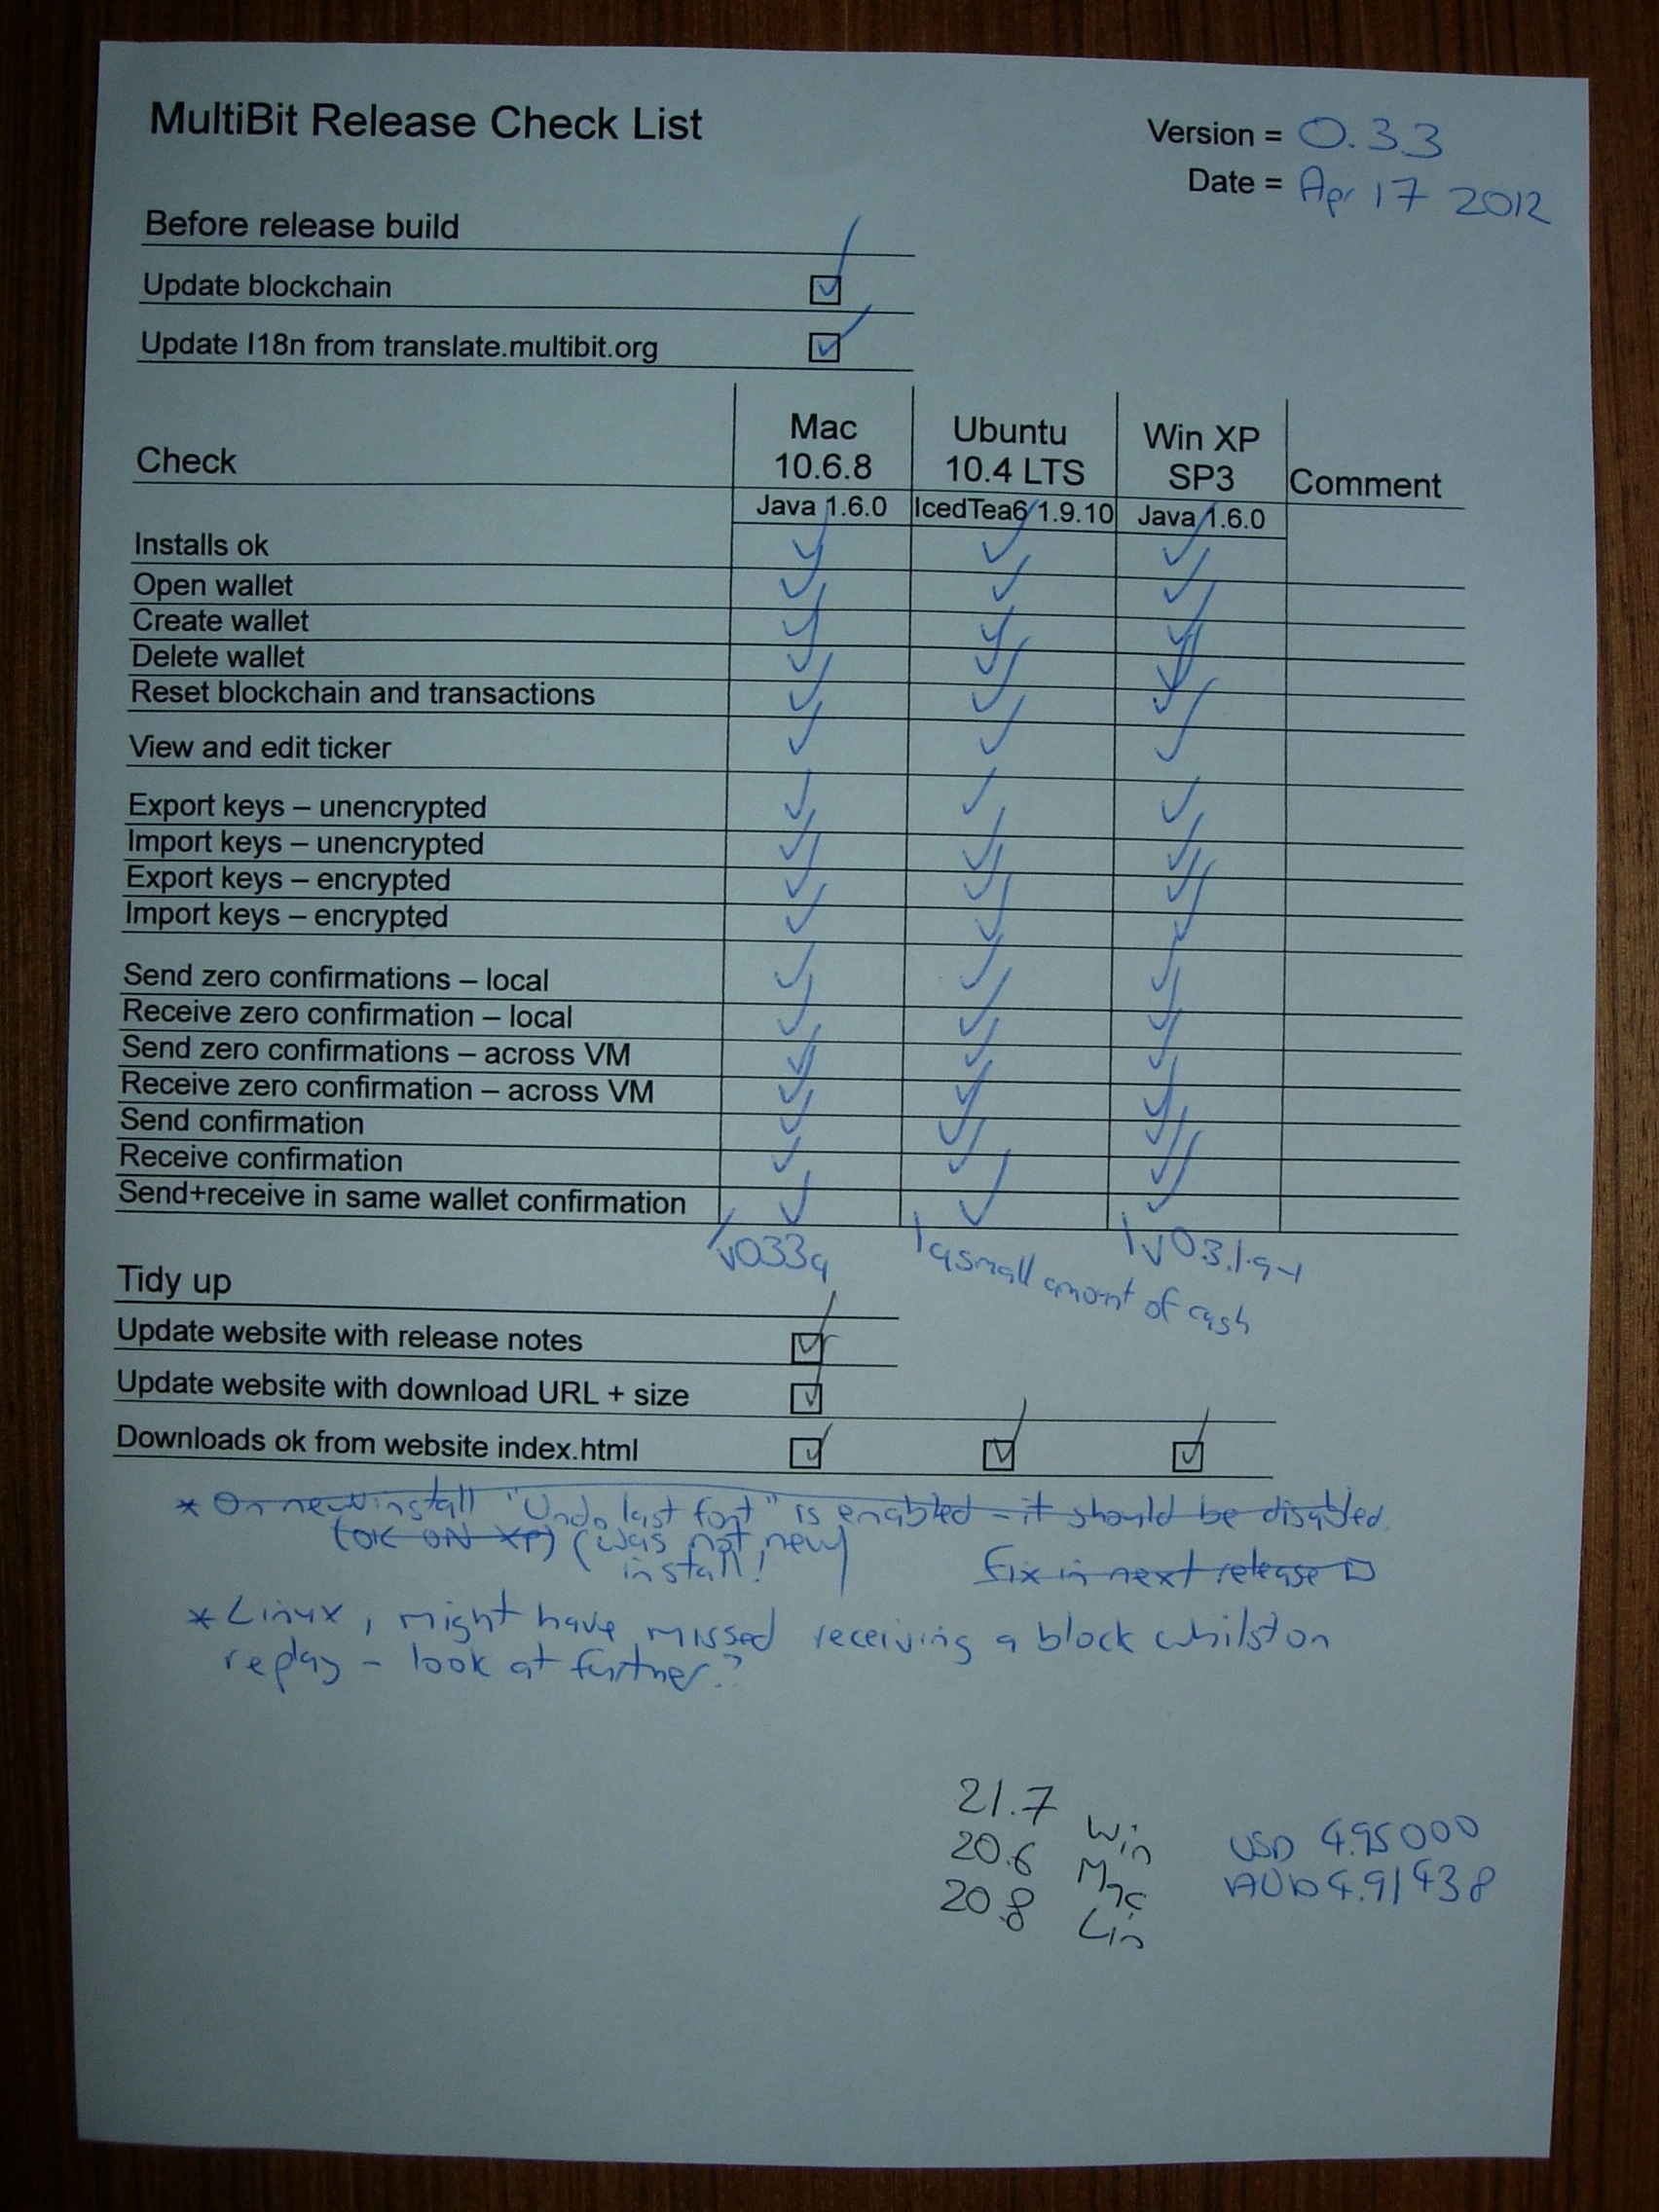 MultiBit Release Check List
Version = 0.3.3
Date = Apr 17 2012
Before release build
Update blockchain ☑
Update I18n from translate.multibit.org ☑
Check Mac 10.6.8 Ubuntu 10.4 LTS Win XP SP3 Comment
Java 1.6.0 IcedTea6 1.9.10 Java 1.6.0
Installs ok ✓ ✓ ✓
Open wallet ✓ ✓ ✓
Create wallet ✓ ✓ ✓
Delete wallet ✓ ✓ ✓
Reset blockchain and transactions ✓ ✓ ✓
View and edit ticker ✓ ✓ ✓
Export keys – unencrypted ✓ ✓ ✓
Import keys – unencrypted ✓ ✓ ✓
Export keys – encrypted ✓ ✓ ✓
Import keys – encrypted ✓ ✓ ✓
Send zero confirmations – local ✓ ✓ ✓
Receive zero confirmation – local ✓ ✓ ✓
Send zero confirmations – across VM ✓ ✓ ✓
Receive zero confirmation – across VM ✓ ✓ ✓
Send confirmation ✓ ✓ ✓
Receive confirmation ✓ ✓ ✓
Send+receive in same wallet confirmation ✓ ✓ ✓
v033a
a small amont of cash
Tidy up
Update website with release notes ☑
Update website with download URL + size ☑
Downloads ok from website index.html ☑ ☑ ☑
* On new install "Undo last font" is enabled – it should be disabled.
(OK ON XP) (was not new
install!
fix in next release □
* Linux, might have missed receiving a block whilst on
replay – look at further?
21.7 Win
20.6 Mac
20.8 Lin
USD 4.95000
AUD 4.91438